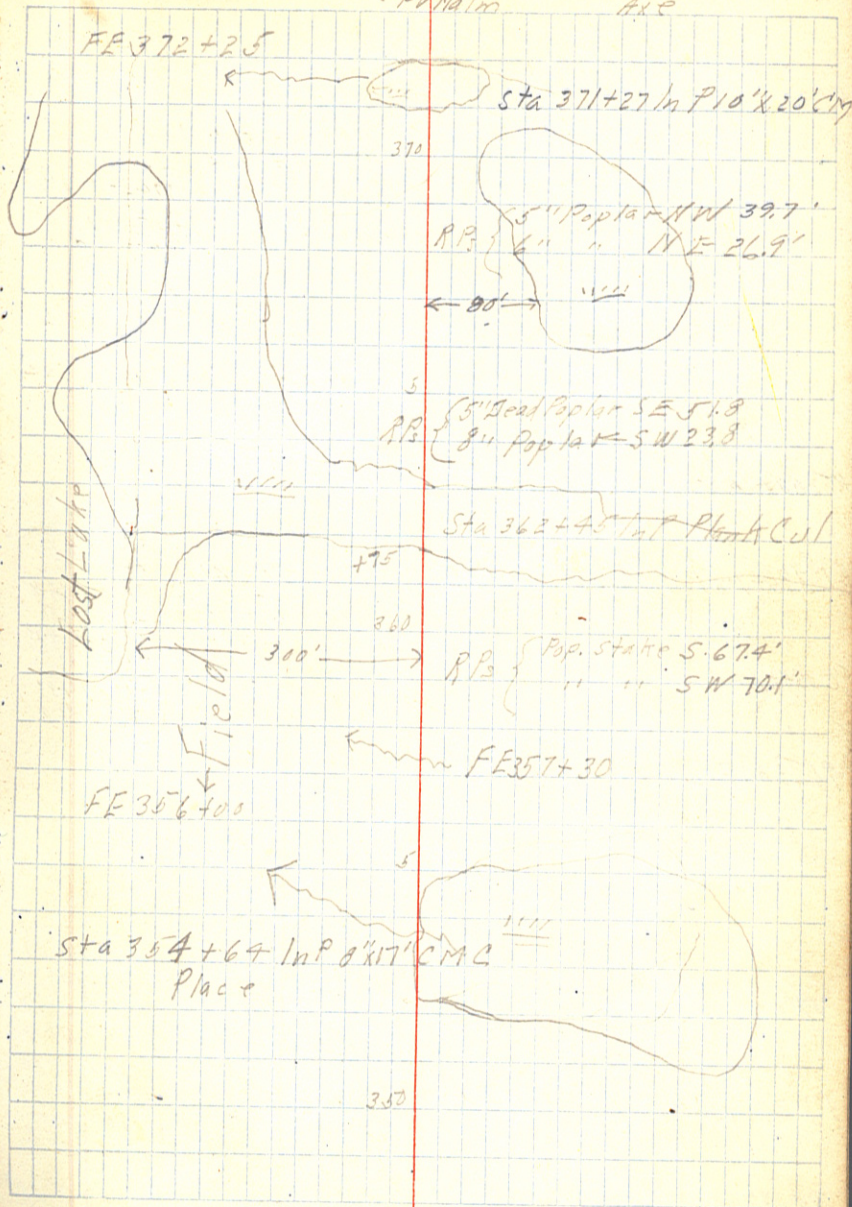 Axe
FE 372+25
Sta 371+27 In P 10"X20' CM
370
RPs { 5" Poplar NW 39.7'
6" " NE 26.9'
80'
5
RPs { 5" Dead Poplar SE 51.8
8" Poplar SW 23.8
Sta 362+45 InP Plank Cul
+75
Lost Lake
360
300'
RPs { Pop. Stake S. 67.4'
" " SW 70.1'
Field
FE 357+30
FE 356+00
5
Sta 354+64 InP 8"X17' CMC
Place
350